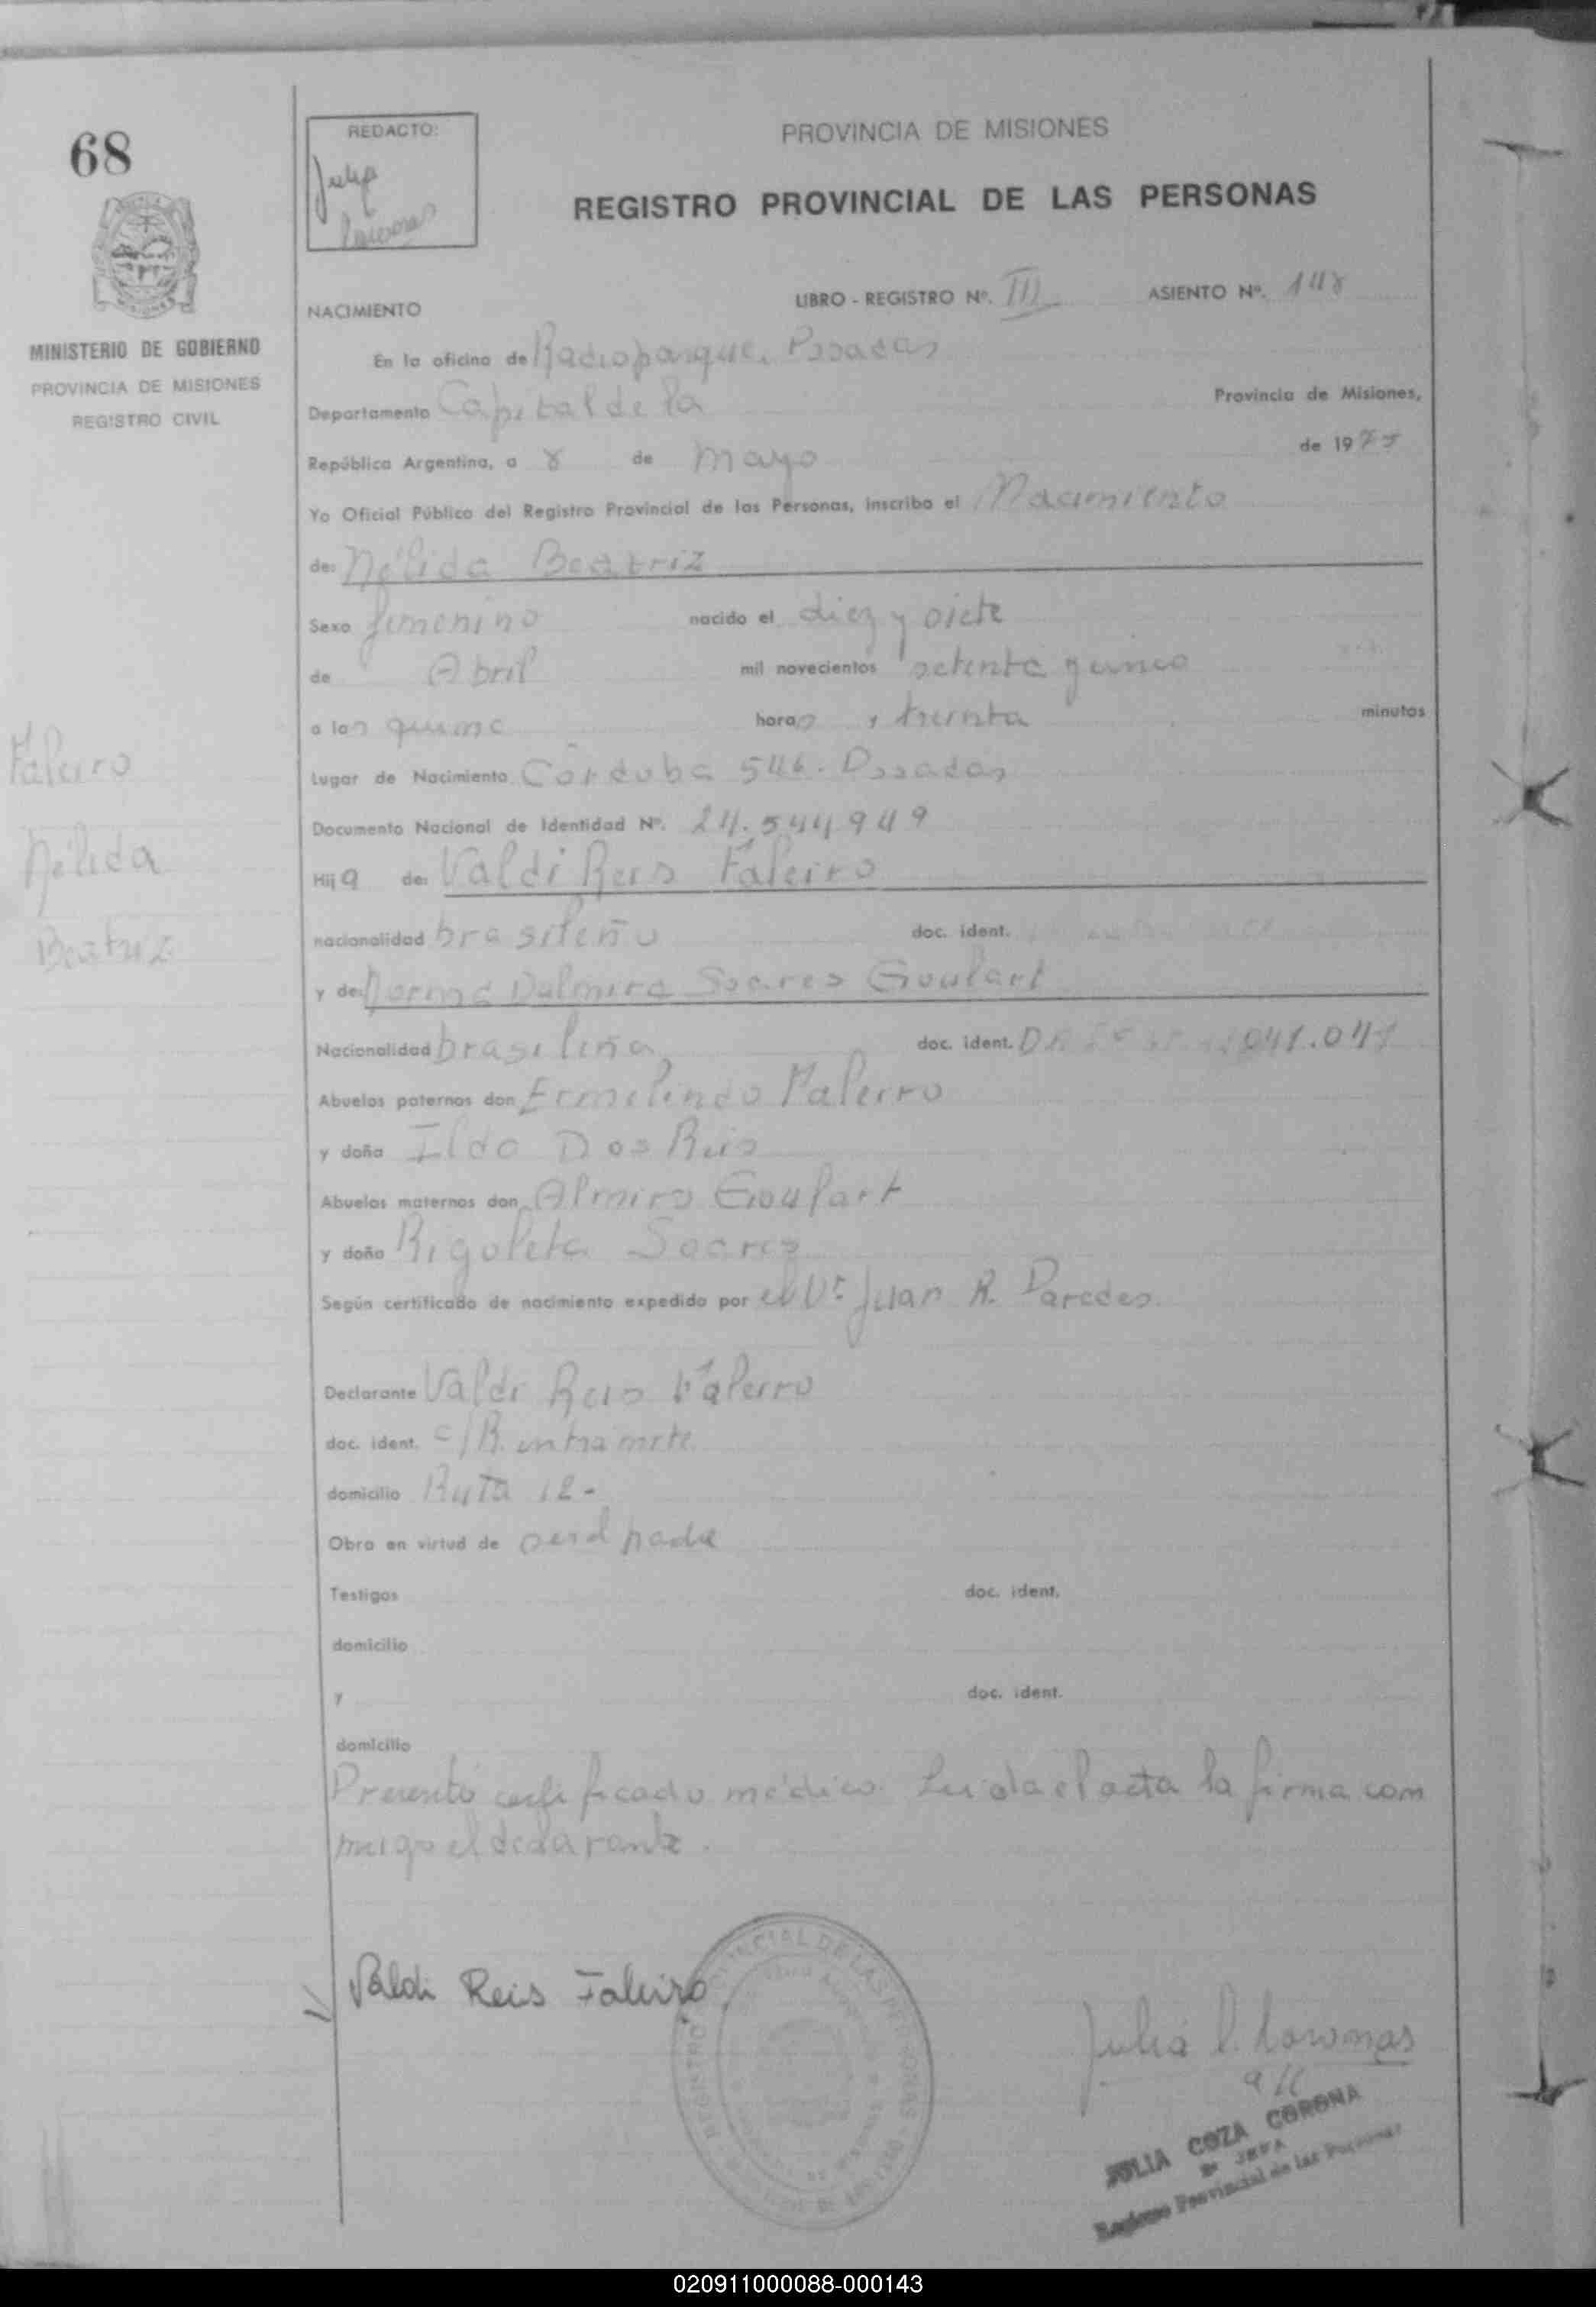 68
REDACTO:
PROVINCIA DE MISIONES
REGISTRO PROVINCIAL DE LAS PERSONAS
MINISTERIO DE GOBIERNO
PROVINCIA DE MISIONES
REGISTRO CIVIL
NACIMIENTO LIBRO - REGISTRO Nº. III ASIENTO Nº. 148
En la oficina de Radioparque. Posadas
Departamento Capital de la Provincia de Misiones,
República Argentina, a 8 de Mayo de 1975
Yo Oficial Público del Registro Provincial de las Personas, inscribo el Nacimiento
de: Nélida Beatriz
Sexo femenino nacido el diez y siete
de Abril mil novecientos setenta y cinco
a las quince horas y treinta minutos
Lugar de Nacimiento Córdoba 546. Posadas
Documento Nacional de Identidad Nº. 24.544949
Hija de: Valdi Reis Faleiro
nacionalidad brasileño doc. ident.
y de: Norma Dalmira Soares Goulart
Nacionalidad brasileña doc. ident. 041.041
Abuelos paternos don Ermelindo Faleiro
y doña Ilda Dos Reis
Abuelos maternos don Almiro Goulart
y doña Rigoleta Soares
Según certificado de nacimiento expedido por el Dr Juan R. Paredes
Declarante Valdi Reis Faleiro
doc. ident. C/R. en tramite
domicilio Ruta 12 -
Obra en virtud de ser el padre
Testigos doc. ident.
domicilio
y doc. ident.
domicilio
Presentó certificado médico. Leida el acta la firma con
migo el declarante.
Faleiro
Nélida
Beatriz
Valdi Reis Faleiro
JULIA COZA CORONA
JEFA
Registro Provincial de las Personas
020911000088-000143